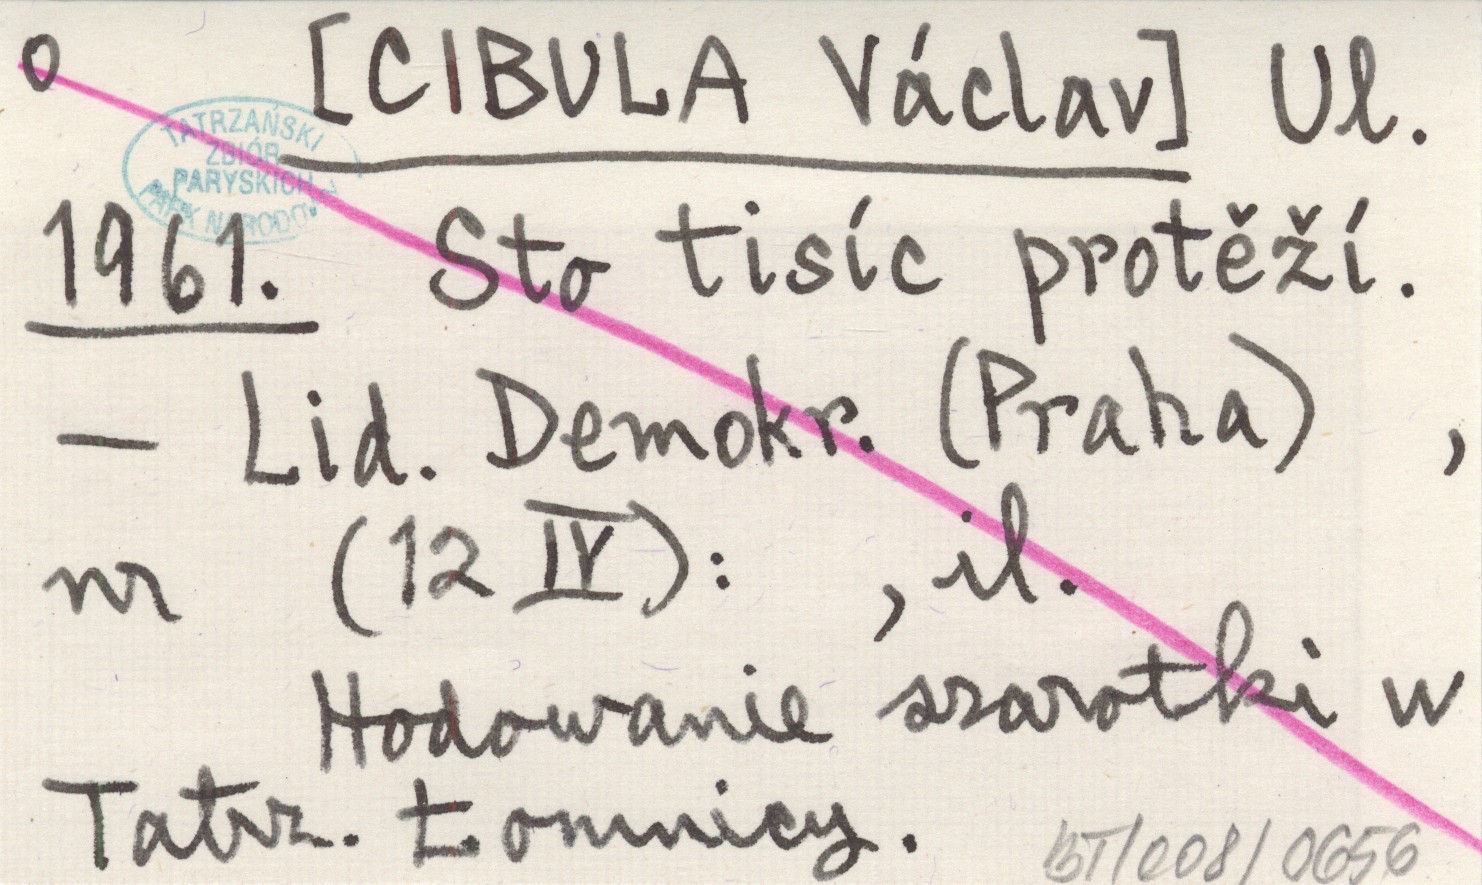 o [CIBULA Václav] Ul.
TATRZAŃSKI
ZBIÓR
PARYSKICH
PARK NARODOW
1961. Sto tisíc protěží.
— Lid. Demokr. (Praha) ,
nr (12 IV): , il.
Hodowanie szarotki w
Tatrz. Łomnicy.
BT/008/0656